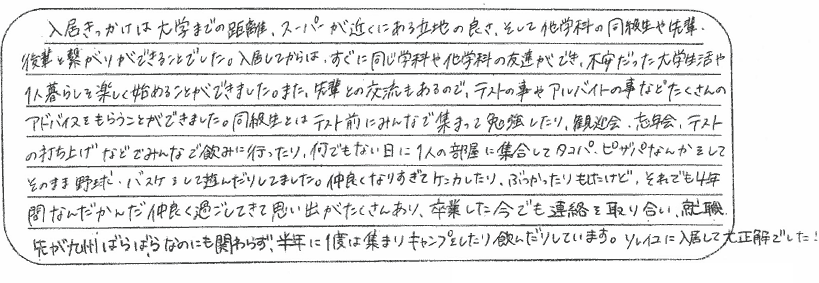 入居きっかけは大学までの距離、スーパーが近くにある立地の良さ、そして他学科の同級生や先輩・
後輩と繋がりができることでした。入居してからは、すぐに同じ学科や他学科の友達ができ、不安だった大学生活や
1人暮らしを楽しく始めることができました。また、先輩との交流もあるので、テストの事やアルバイトの事などたくさんの
アドバイスをもらうことができました。同級生とはテスト前にみんなで集まって勉強したり、観迎会、忘年会、テスト
の打ち上げなどでみんなで飲みに行ったり、何でもない日に1人の部屋に集合してタコパ、ピザパなんかをして
そのまま野球・バスケをして遊んだりしてました。仲良くなりすぎてケンカしたり、ぶつかったりもしたけど、それでも4年
間なんだかんだ仲良く過ごしてきて思い出がたくさんあり、卒業した今でも連絡を取り合い、就職
先が九州ばらばらなのにも関わらず、半年に1度は集まりキャンプをしたり飲んだりしています。ソレイユに入居して大正解でした!